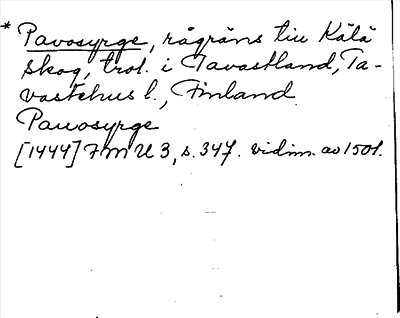 * Pavosyrge, rågräns till Kälä
skog, trol. i Tavastland, Ta-
vastehus l., Finland.
Pauosyrge
[1444] FMU 3, s. 347. vidim. av 1501.